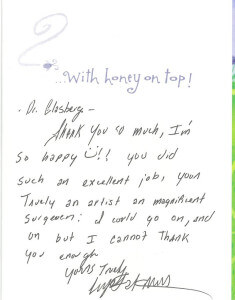 ...With honey on top!
· Dr. Glosberg –
Thank you so much, I'm
So happy !! you did
such an excellent job, your
Truely an artist an magnificent
Surgeon: I could go on, and
on but I cannot Thank
You enough
Yours Truly